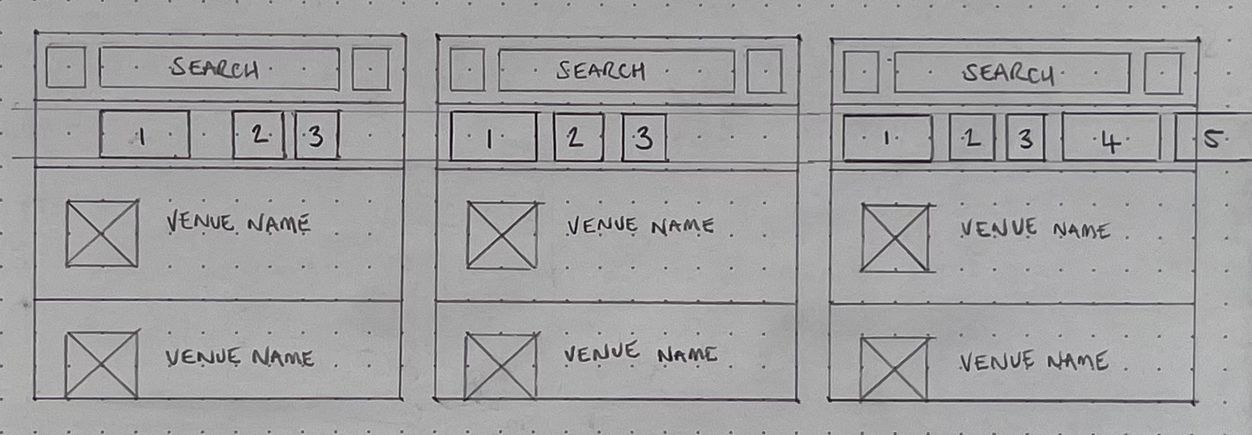 SEARCH
1 2 3
VENUE NAME
VENUE NAME
SEARCH
1 2 3
VENUE NAME
VENUE NAME
SEARCH
1 2 3 4 5
VENUE NAME
VENUE NAME